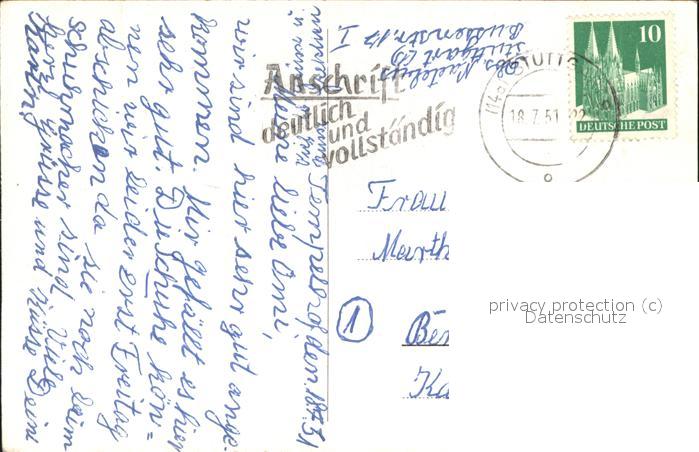 Tempelhof den 18.7.51
Meine liebe Omi,
wir sind hier sehr gut ange-
kommen. Mir gefällt es hier
sehr gut. Die Schuhe kön=
nen wir leider erst Freitag
abschicken da sie noch beim
schuhmacher sind. Viele
herzl. Grüsse und Küsse Deine
Karin
Abs.
Stuttgart
I
Anschrift
deutlich
und
vollständig
(14a) STUTTG
18.7.51
10
DEUTSCHE POST
Frau
Marth
1
Ber
Ka
privacy protection (c)
Datenschutz